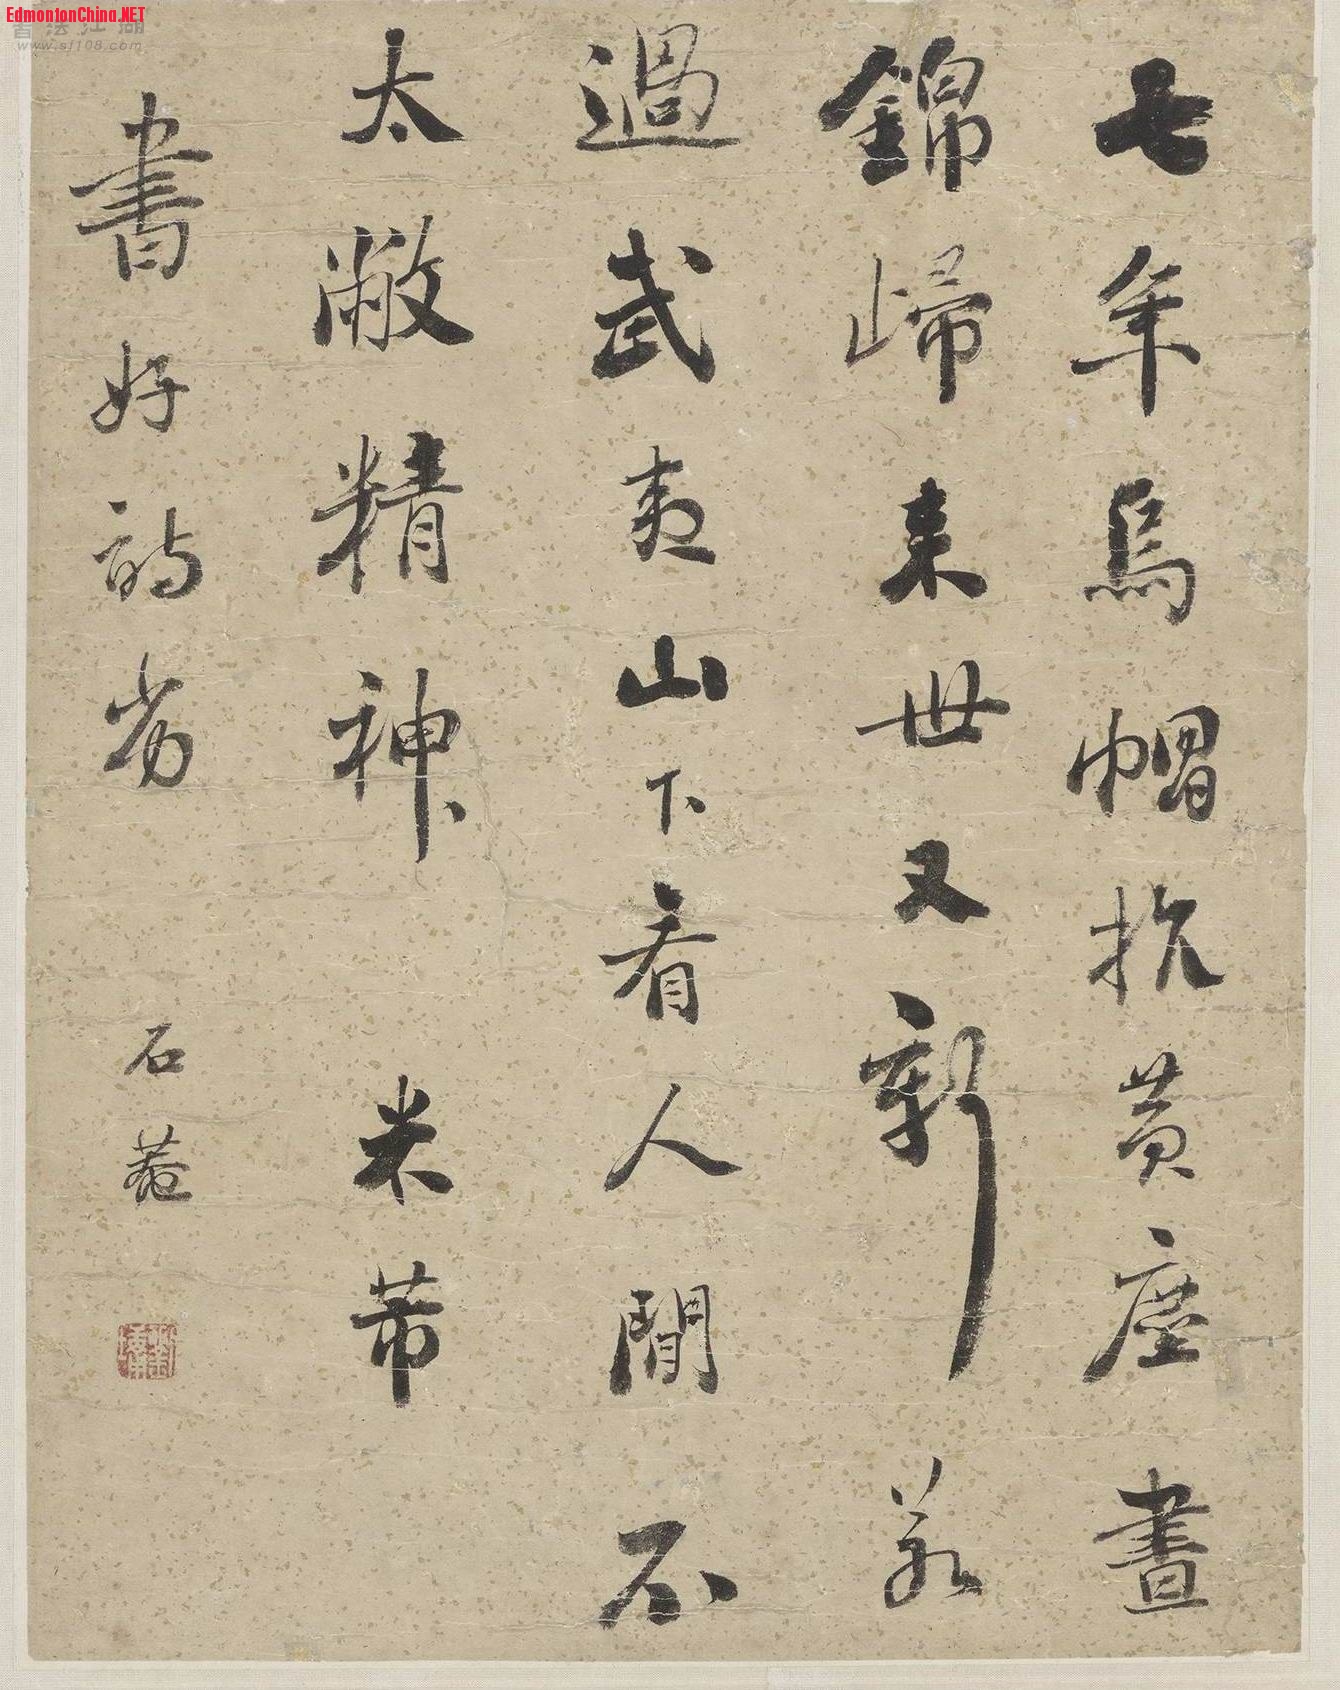 七年烏帽抗黃塵晝
錦歸来世又新羕
過武夷山下看人間不
太敝精神 米芾
書好詩劣
石菴
EdmontonChina.NET
書法江湖
www.sf108.com